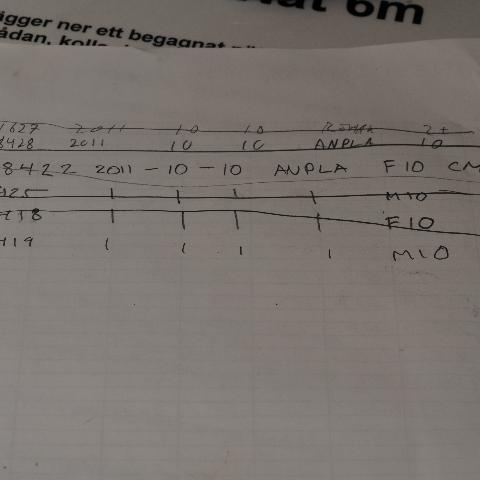 6m
ägger ner ett begagnat
ådan, kolla
1627 2011 10 10
8428 2011 10 10 ANPLA 10
8422 2011-10-10 ANPLA F10 CM
425 | | | | M10
418 | | | | F10
419 | | | | M10